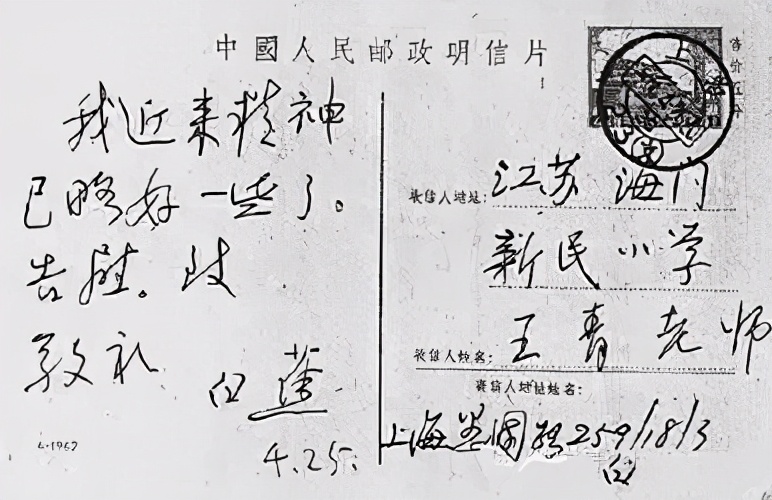 中國人民邮政明信片
我近来精神
已略好一些了。
告慰。致
敬礼
白蕉
4.25.
收信人地址: 江苏 海门
新民小学
收信人姓名: 王青老师
寄信人地址姓名:
上海 259/18/3
白